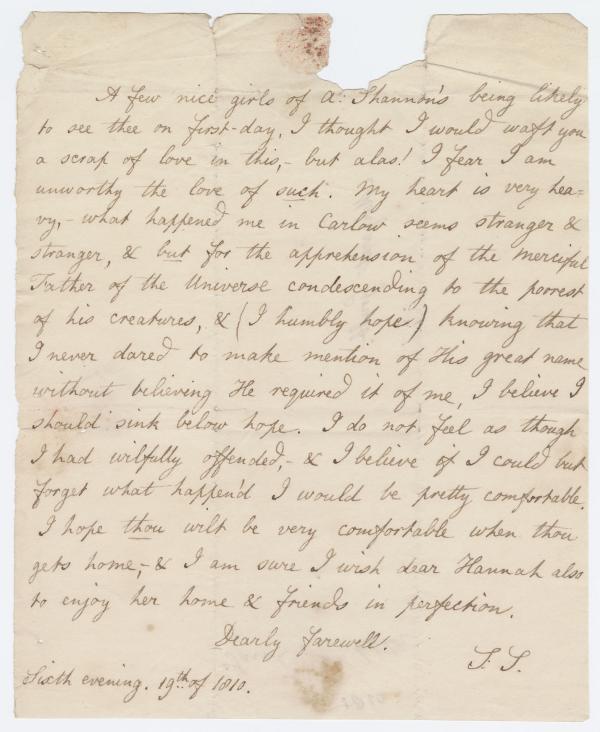 A few nice girls of A: Shannon's being likely
to see thee on first-day, I thought I would waft you
a scrap of love in this,- but alas! I fear I am
unworthy the love of such. My heart is very hea=
vy,- what happened me in Carlow seems stranger &
stranger, & but for the apprehension of the Merciful
Father of the Universe condescending to the poorest
of his creatures, & (I humbly hope) knowing that
I never dared to make mention of His great name
without believing He required it of me, I believe I
should sink below hope. I do not feel as though
I had wilfully offended,- & I believe if I could but
forget what happen'd I would be pretty comfortable.
I hope thou wilt be very comfortable when thou
gets home,- & I am sure I wish dear Hannah also
to enjoy her home & friends in perfection.
Dearly farewell.
S. S.
Sixth evening. 19th of 1810.